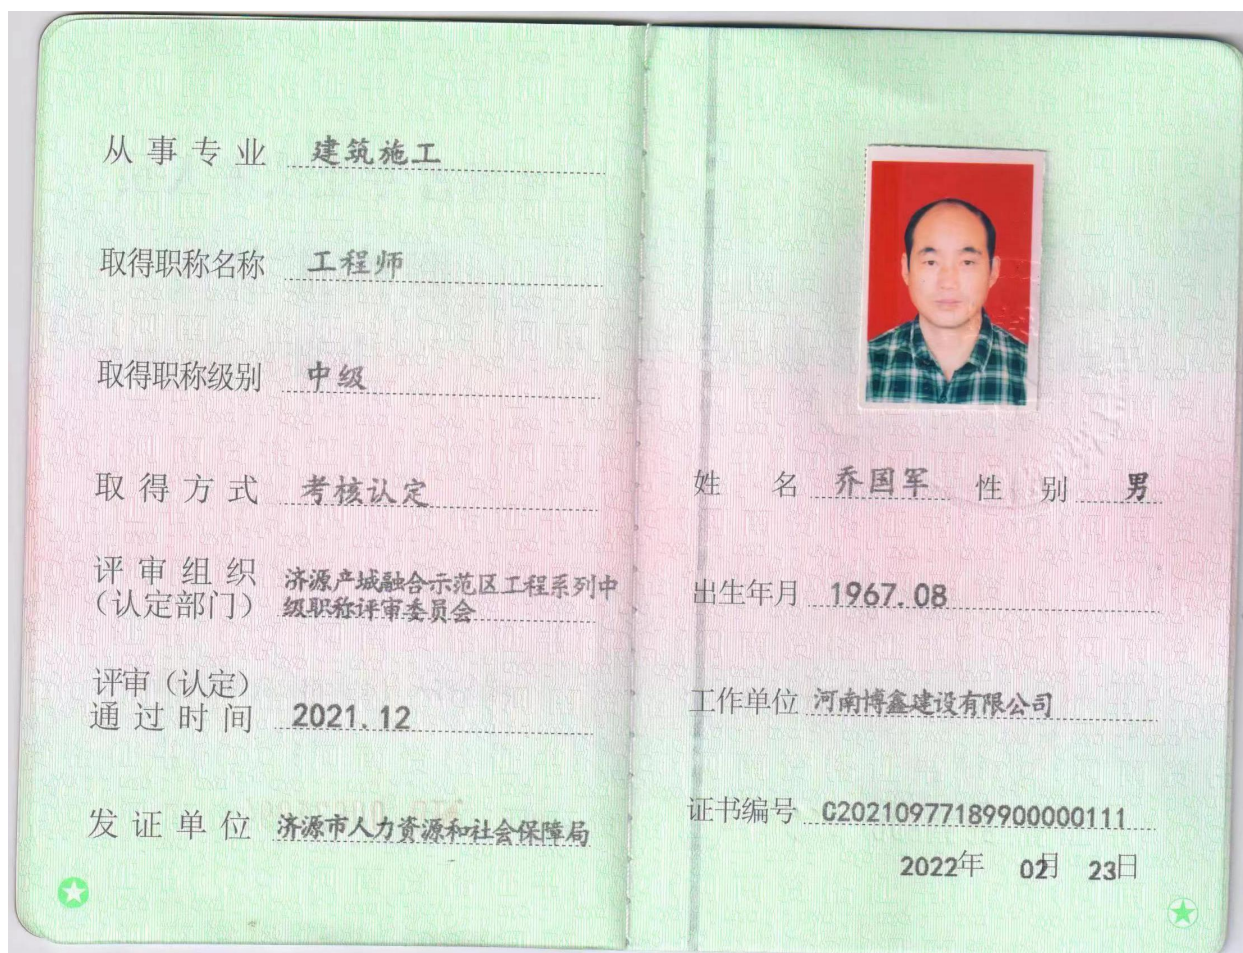 从事专业 建筑施工
取得职称名称 工程师
取得职称级别 中级
取得方式 考核认定
评审组织
(认定部门) 济源产城融合示范区工程系列中
级职称评审委员会
评审(认定)
通过时间 2021.12
发证单位 济源市人力资源和社会保障局
姓名 乔国军 性别 男
出生年月 1967.08
工作单位 河南博鑫建设有限公司
证书编号 C20210977189900000111
2022年 02月 23日